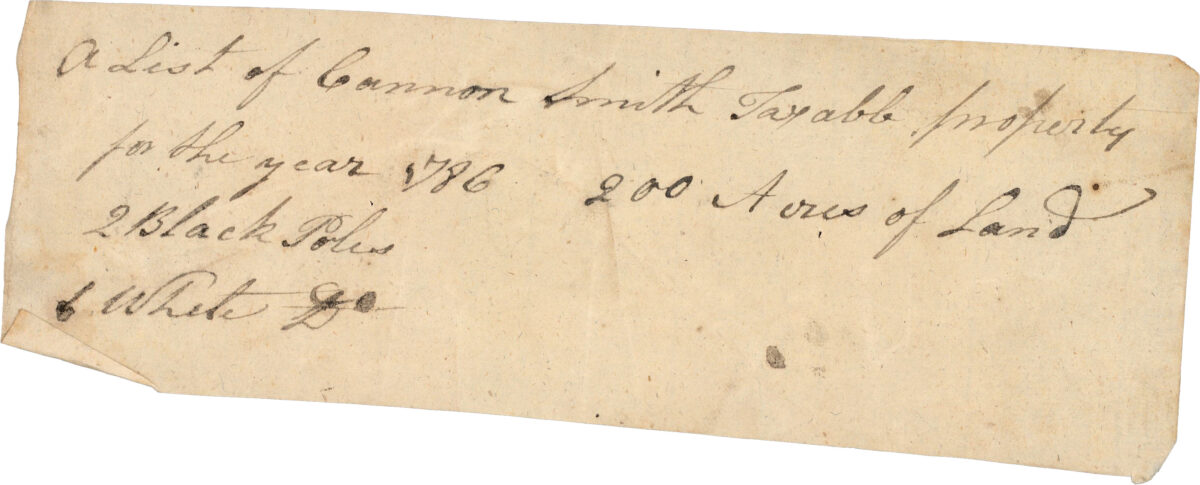 A List of Cannon Smith Taxable property
for the year 1786 200 Acres of Land
2 Black Poles
White Do